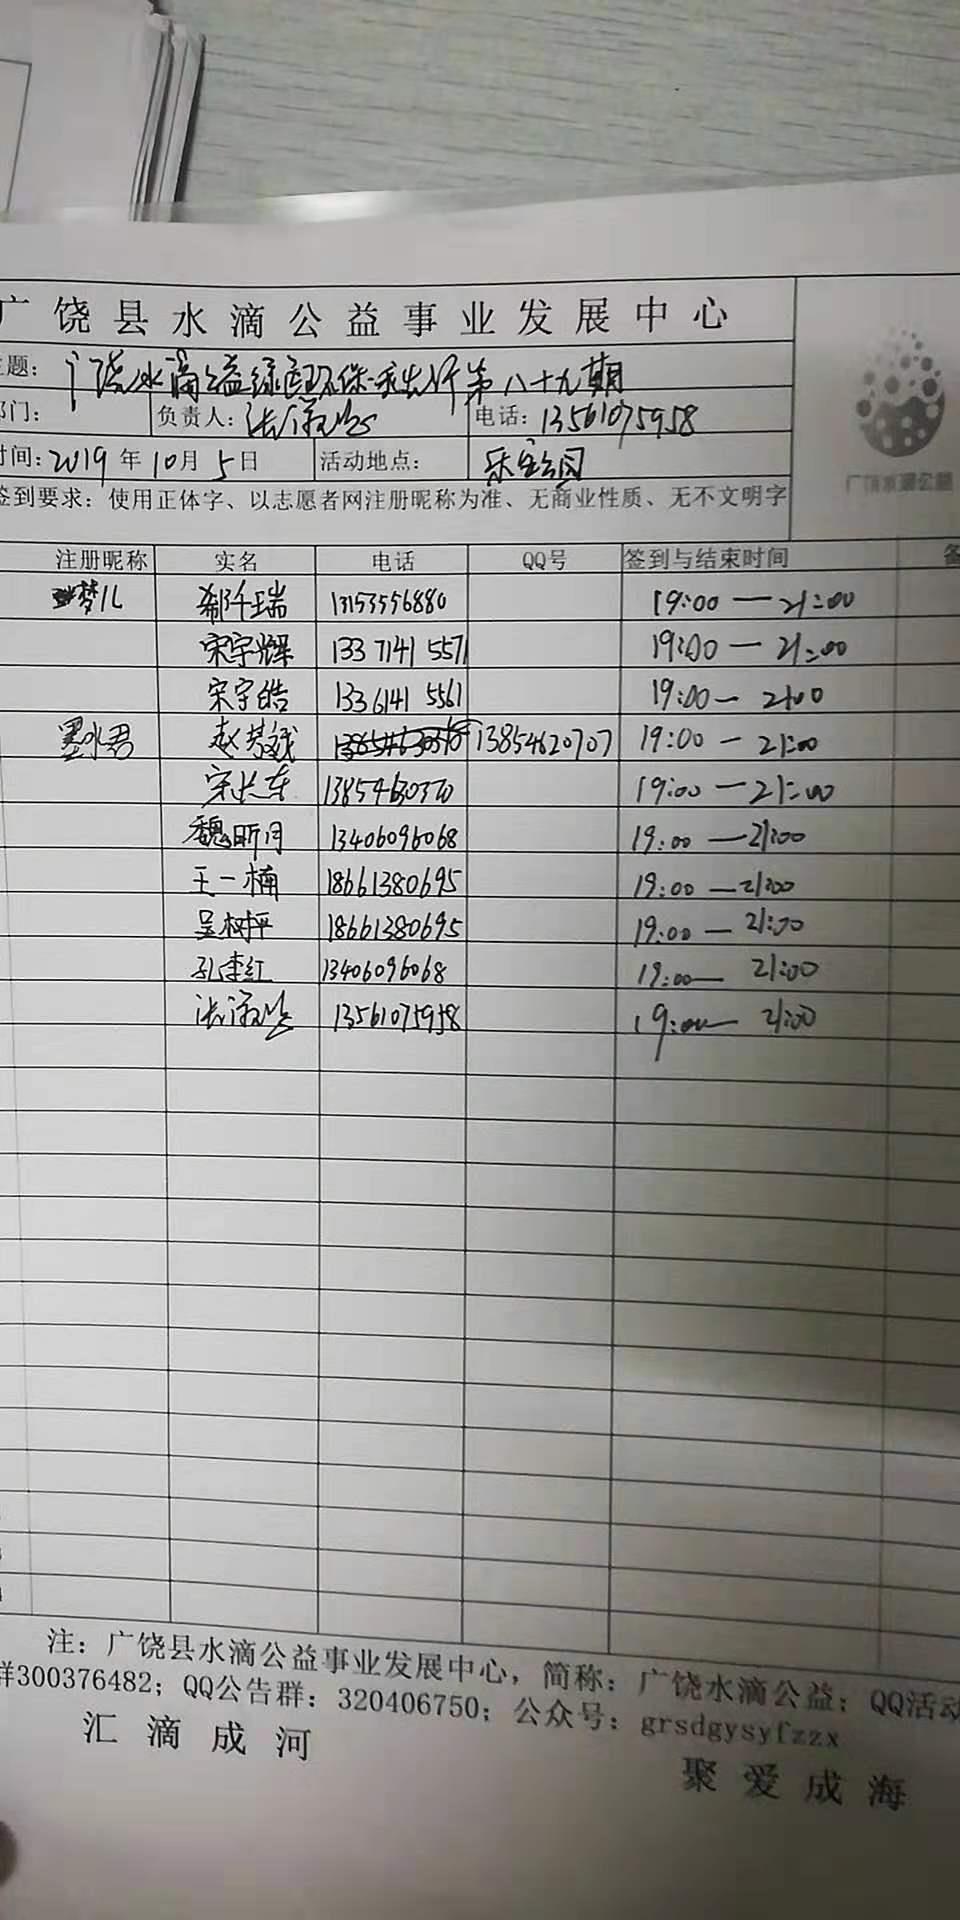 广饶县水滴公益事业发展中心
主题：广饶水滴公益绿色环保 第八十九期
部门： 负责人： 电话：13561075958
时间：2019年10月5日 活动地点：乐安公园
签到要求：使用正体字、以志愿者网注册昵称为准、无商业性质、无不文明字
广饶水滴公益
注册昵称 实名 电话 QQ号 签到与结束时间 备
梦儿 郗千瑞 13153556880 19:00—21:00
宋宇辉 13371415571 19:00—21:00
宋宇皓 13361415561 19:00—21:00
墨水君 赵梦娥 13854620707 19:00—21:00
宋长东 13854630370 19:00—21:00
魏昕月 13406096068 19:00—21:00
王一楠 18661380695 19:00—21:00
吴树平 18661380695 19:00—21:00
孔李红 13406096068 19:00—21:00
13561075958 19:00—21:00
注：广饶县水滴公益事业发展中心，简称：广饶水滴公益；QQ活动
群300376482；QQ公告群：320406750；公众号：grsdgysyfzzx
汇滴成河
聚爱成海